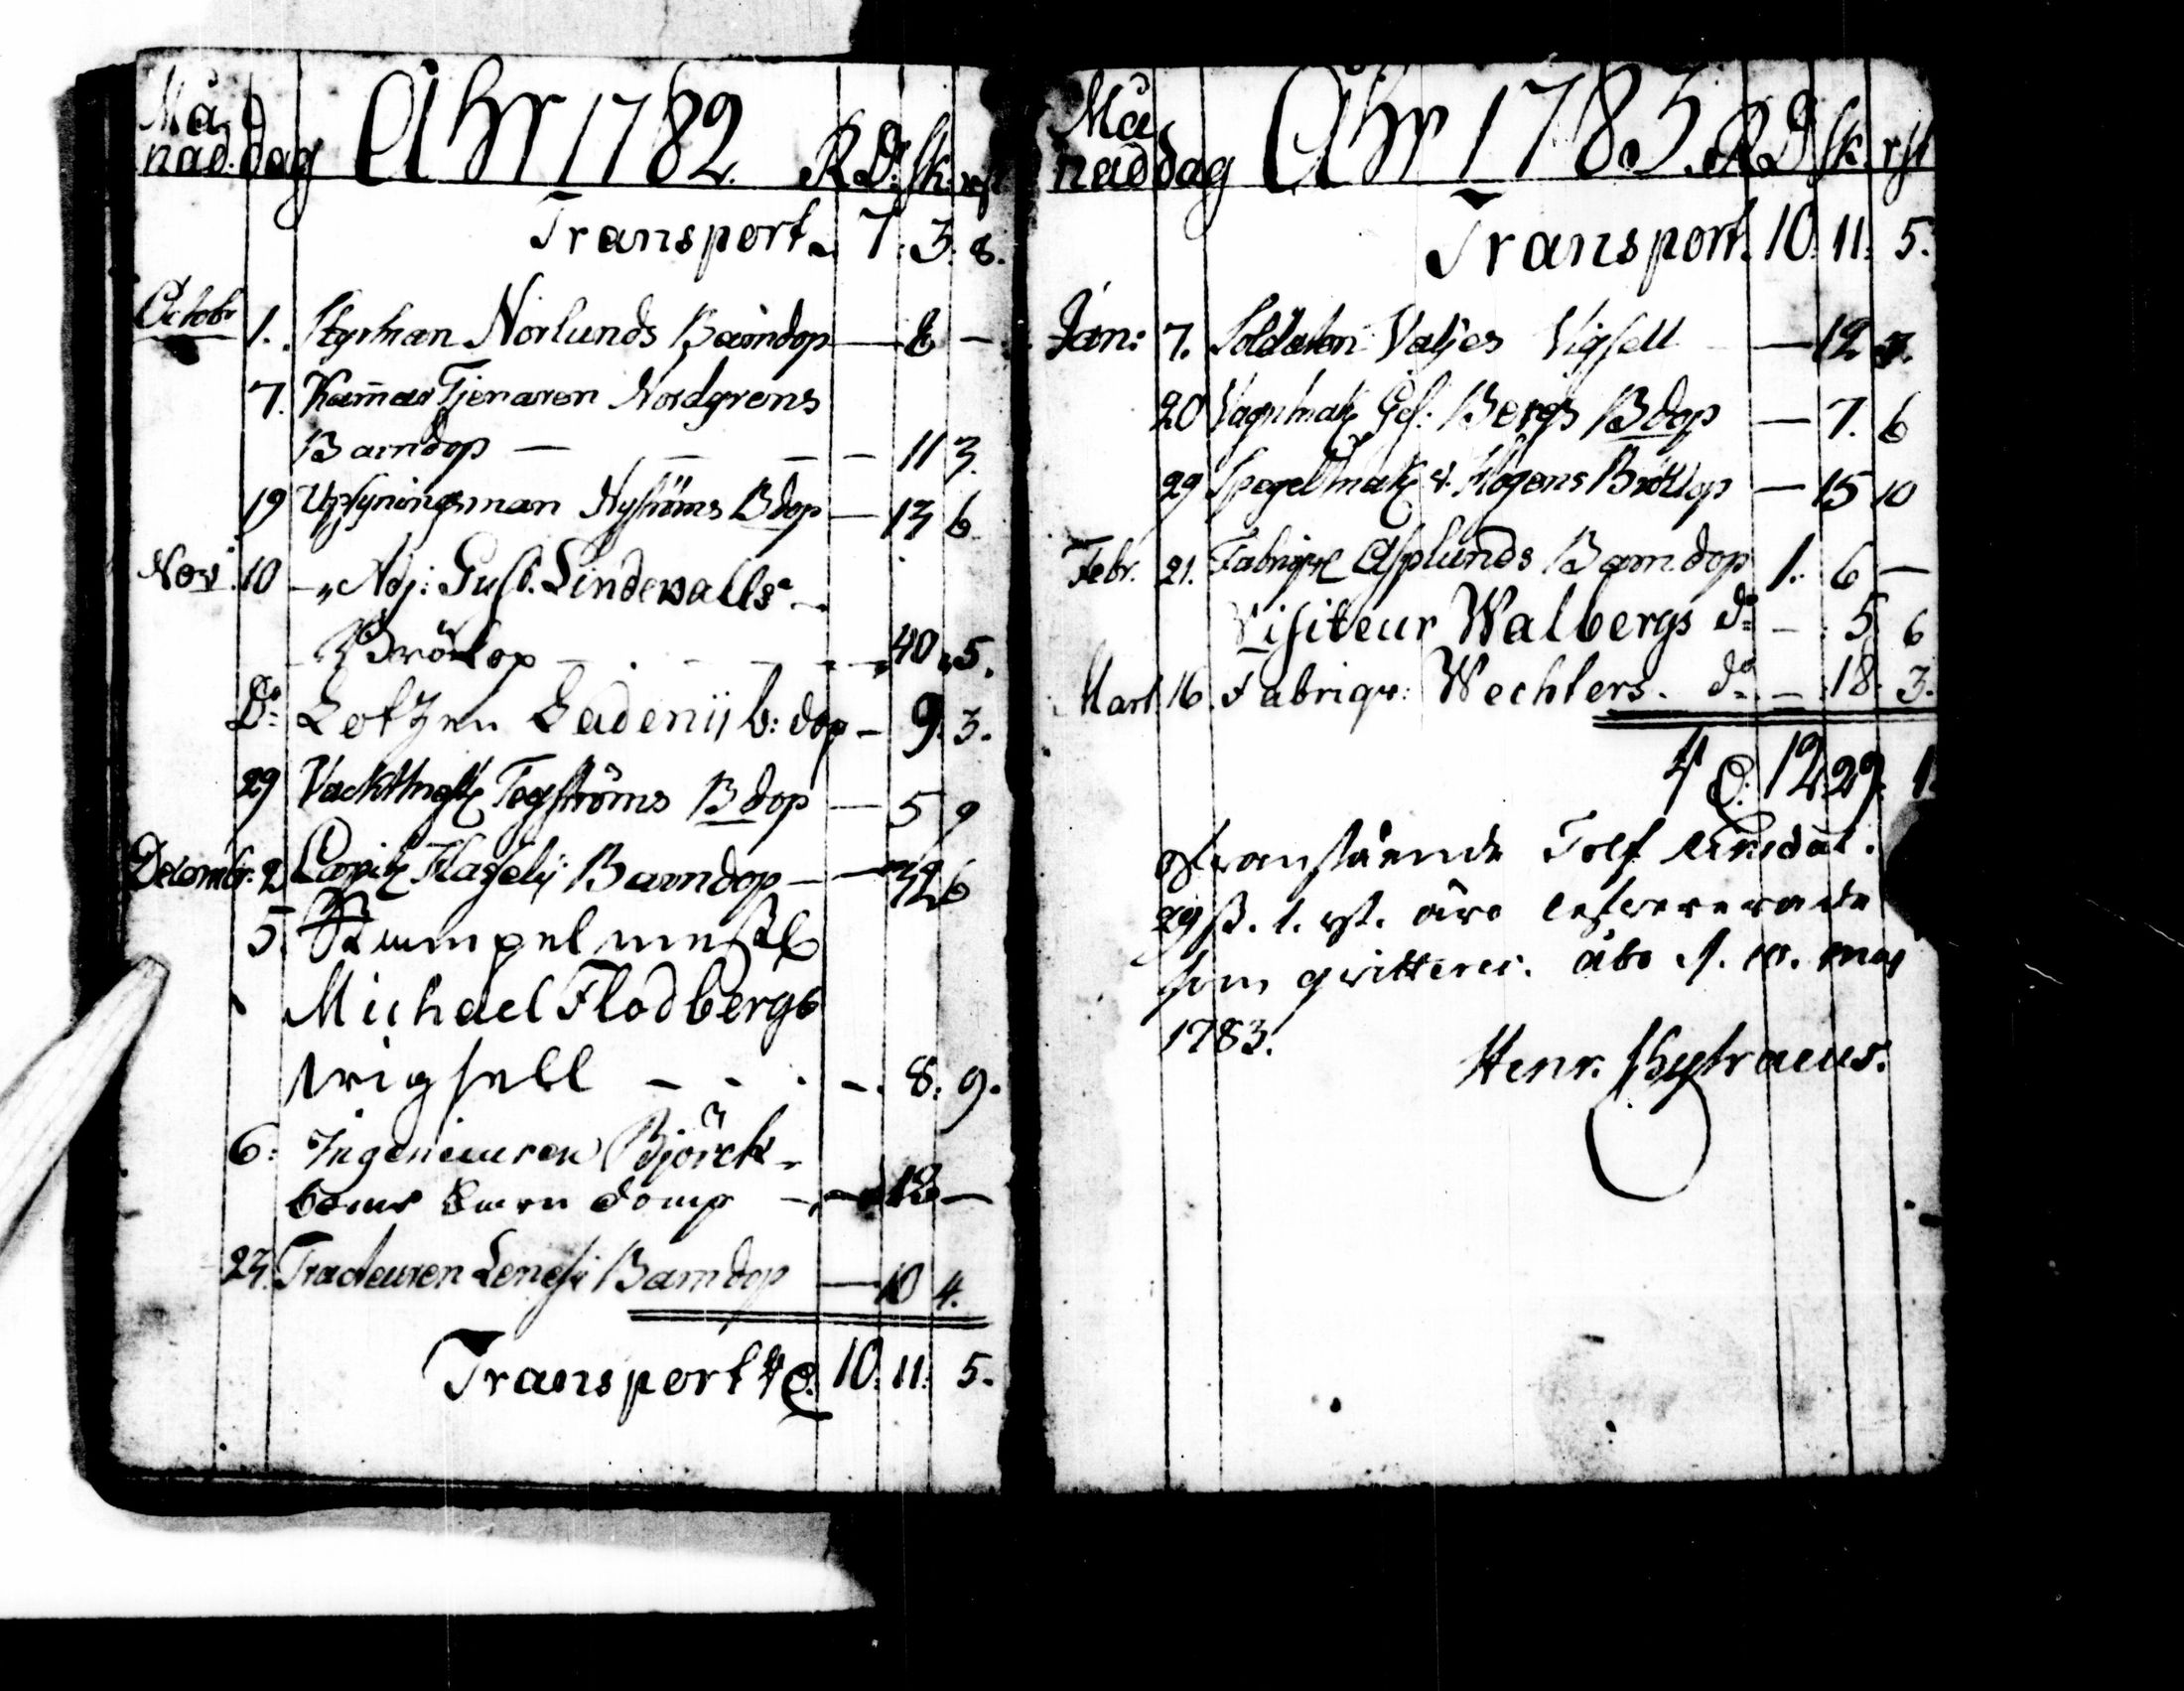 Må
nad. dag Åhr 1782. RD. sk. rst
Transport. 7. 3. 8.
Octobr 1. Styrman Norlunds Barndop — 8 —
7. Kam̄arTjenaren Nordgrens
Barndop — — — — 11 3.
19 Upsyningsman Nyströms Bdop — 13 6.
Nov. 10 Adj: Gust. Lindewalls
Brölop — 40. 5.
Do Lotzen Ladenii b: dop — 9. 3.
29 Vacktmest Tegströms Bdop — 5 9
Decembr. 2 Capit Hagelii Barndop — 32 6
5. Stempelmest
Michael Flodbergs
wigsell — — . — 8. 9.
6: Ingenieuren Björck-
boms barn domp — 12 —
23. Tracteuren Barndop — 10 4.
Transport 10. 11. 5.
Må
nad dag Åhr 1783. RD sk. rst
Transport. 10. 11. 5.
Jan: 7. Soldaten Valjes Vigsell — 12 3.
20 Vagnmak Ges. Bergs Bdop — 7. 6
29 Spegelmak Bröllop — 15 10
Febr. 21. Fabriqr Asplunds Barndop 1. 6 —
Visiteur Walbergs do — 5 6
Mart. 16. Fabriqr: Wechters. do — 18. 3.
12. 29. 1.
ofvanstående Tolf Riksdal.
29 ß. 1. rst. äro lefvererade
som qvitteras. Åbo d. 10. maj
1783.
Henr. Chytraeus.